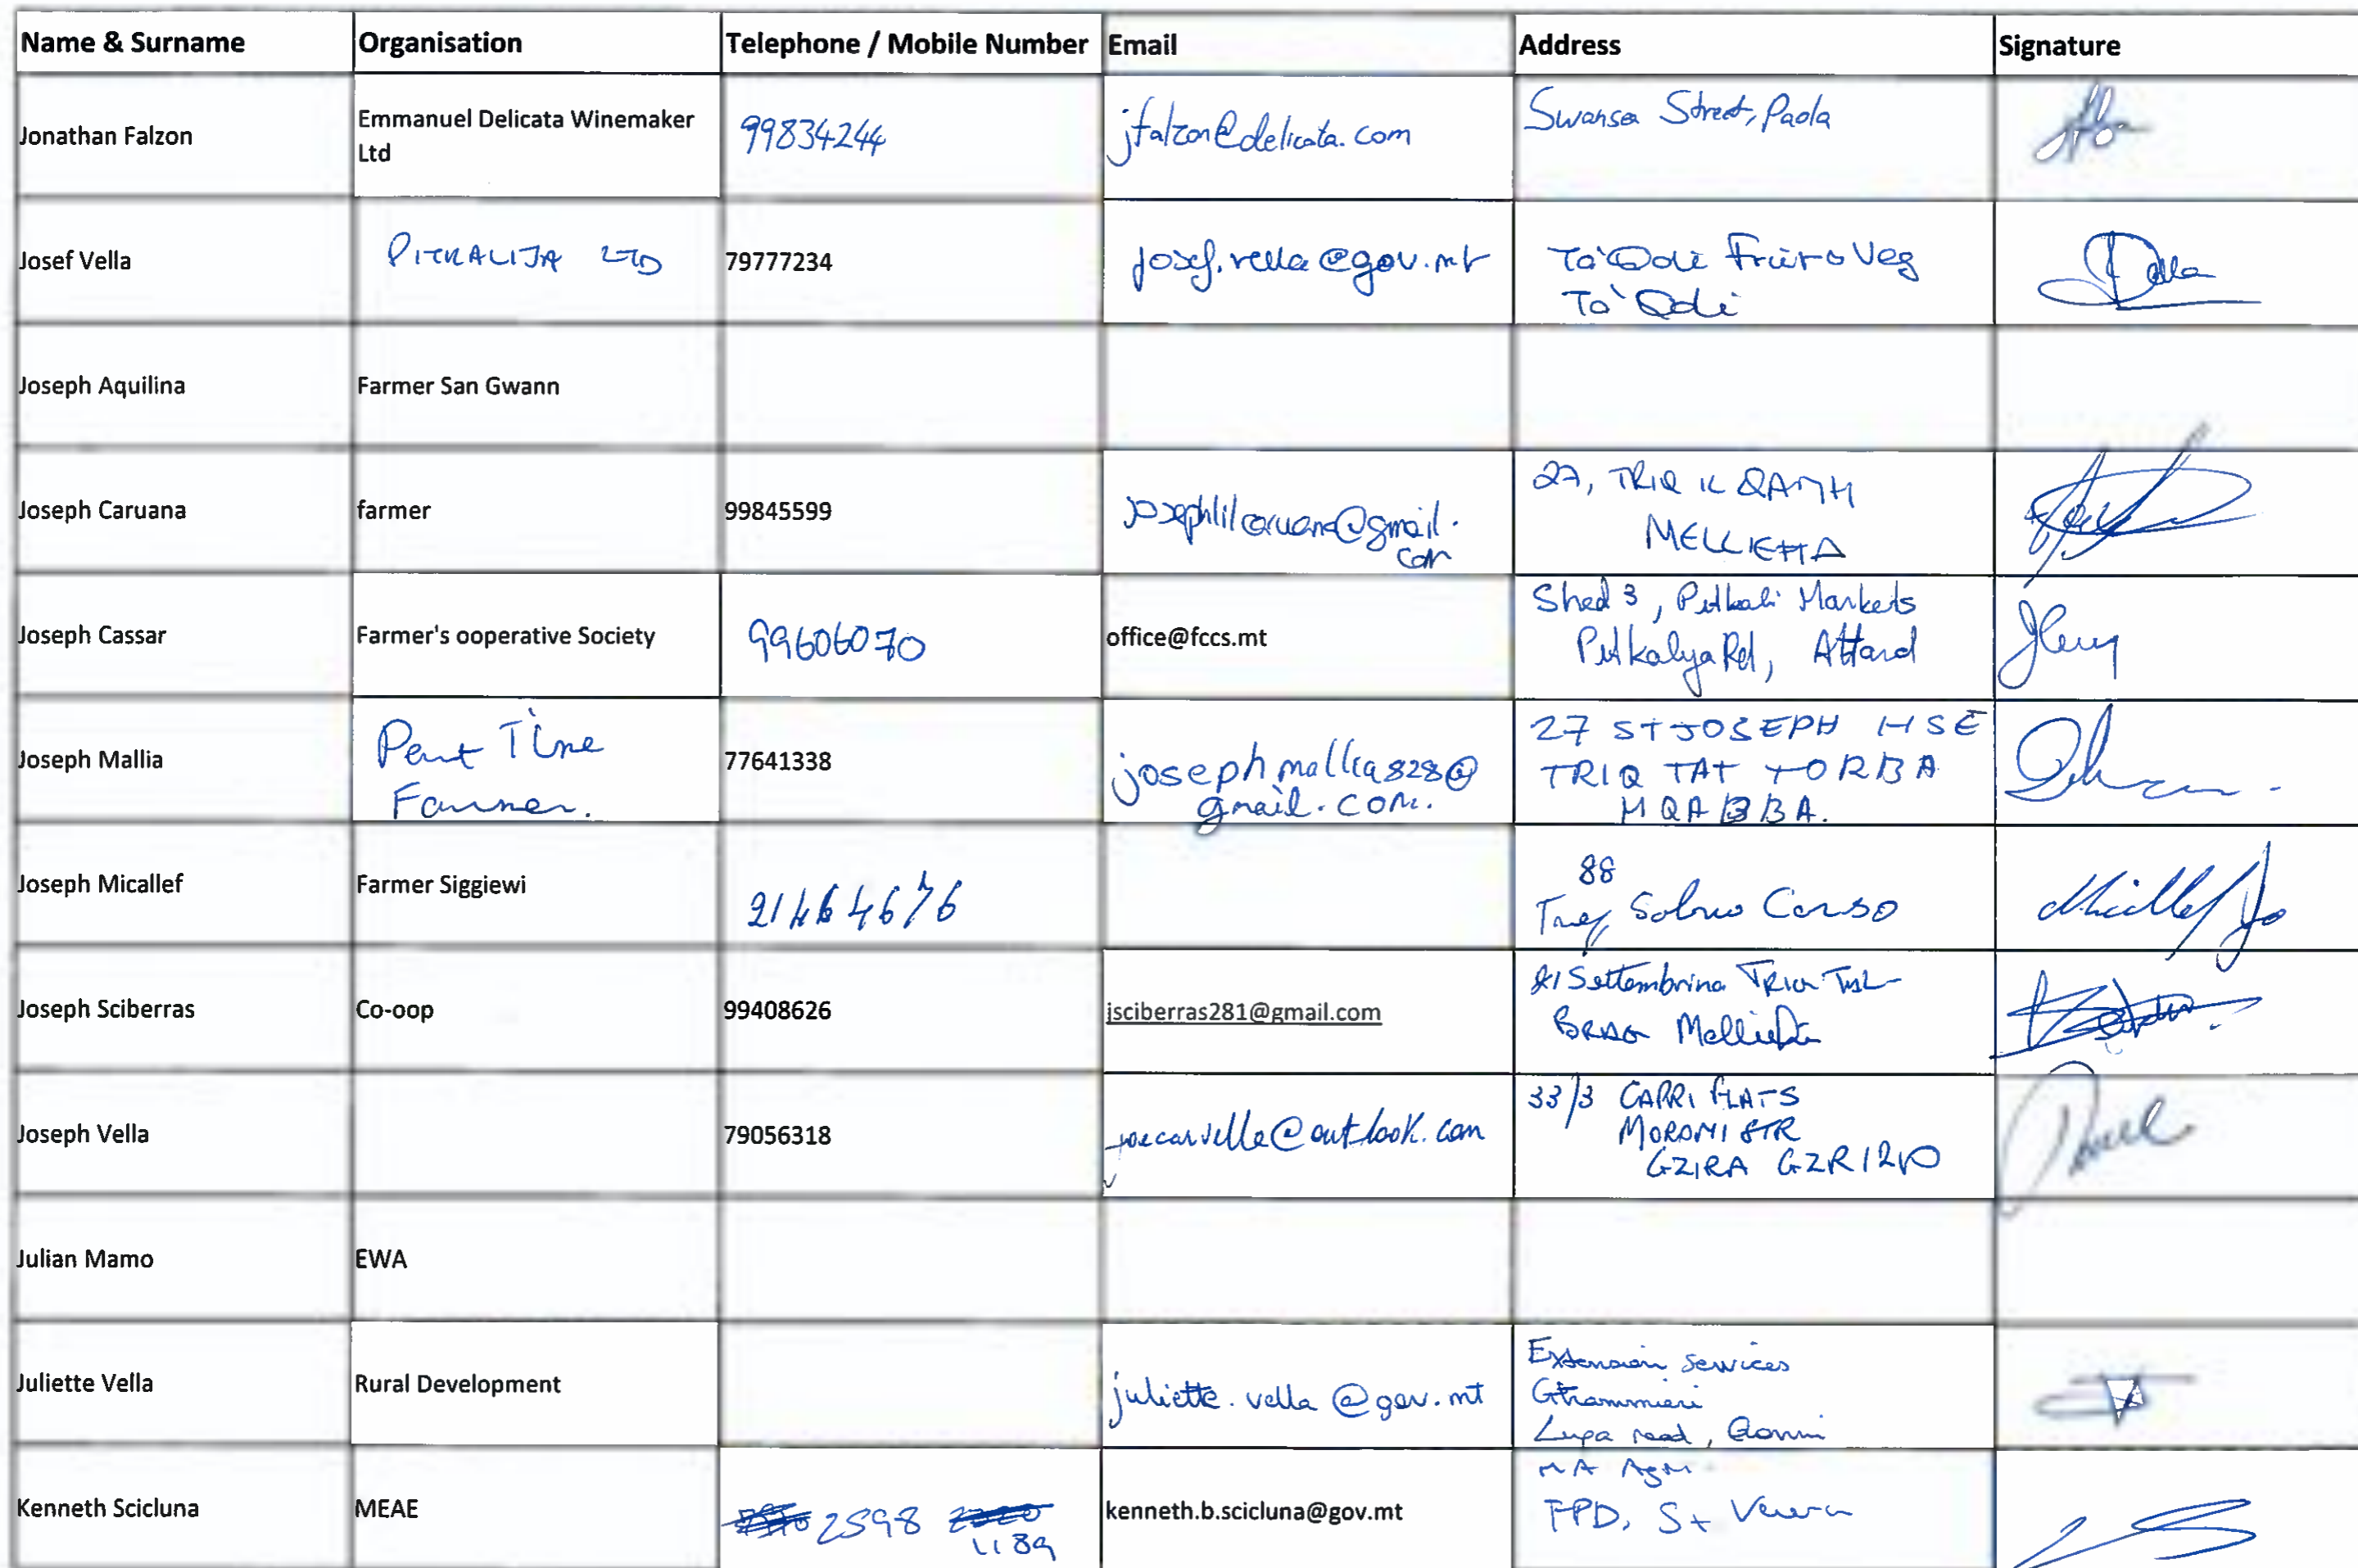 Name & Surname Organisation Telephone / Mobile Number Email Address Signature
Jonathan Falzon Emmanuel Delicata Winemaker Ltd 99834244 jfalzon@delicata.com Swansea Street, Paola
Josef Vella PITKALIJA LTD 79777234 josef.vella@gov.mt Ta'Qali Fruit & Veg
Ta'Qali
Joseph Aquilina Farmer San Gwann
Joseph Caruana farmer 99845599 josephlilcaruana@gmail.com 27, TRIQ IL QAMH
MELLIEHA
Joseph Cassar Farmer's ooperative Society 99606070 office@fccs.mt Shed 3, Pitkali Markets
Pitkalya Rd, Attard
Joseph Mallia Part Time
Farmer. 77641338 josephmallia828@
gmail.com. 27 ST JOSEPH HSE
TRIQ TAT TORBA
MQABBA.
Joseph Micallef Farmer Siggiewi 21464676 88
Triq
Joseph Sciberras Co-oop 99408626 jsciberras281@gmail.com Settembrina TRIQ
Mellieħa
Joseph Vella 79056318 joecarvella@outlook.com 33/3 CAPRI FLATS
STR
GZIRA
Julian Mamo EWA
Juliette Vella Rural Development juliette.vella@gov.mt Extension Services
Għammieri
Lupa road, Qormi
Kenneth Scicluna MEAE 2598 kenneth.b.scicluna@gov.mt
FPD, St